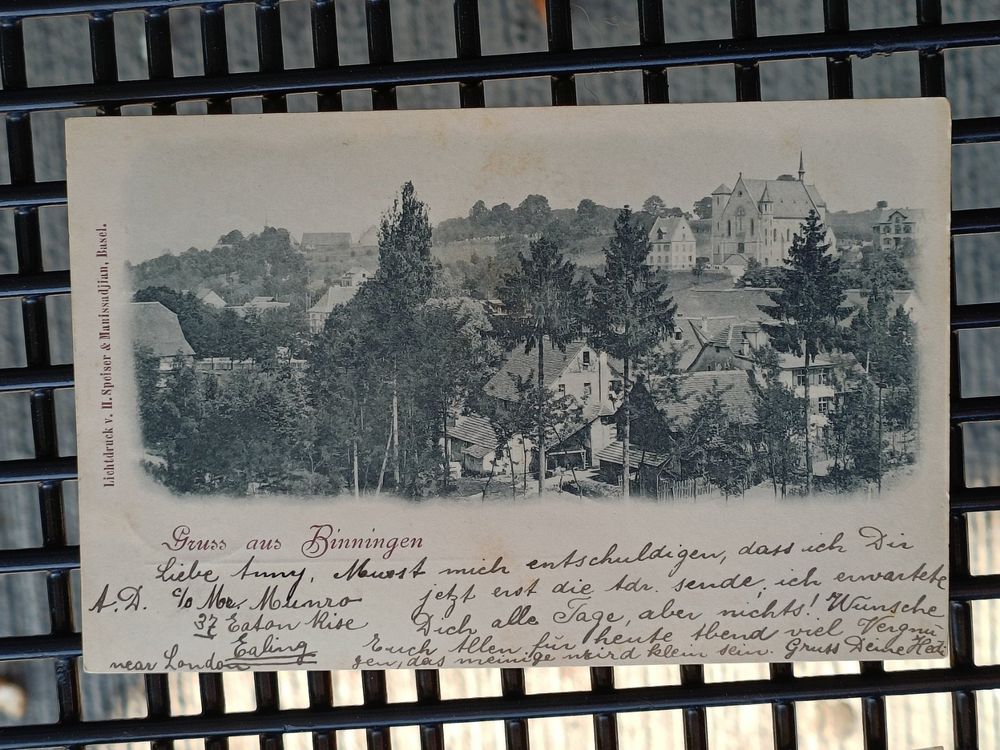 Lichtdruck v. H. Speiser & Manissadjian, Basel.
Gruss aus Binningen
Liebe Anny, Musst mich entschuldigen, dass ich Dir
jetzt erst die Adr. sende, ich erwartete
Dich alle Tage, aber nichts! Wünsche
Euch Allen für heute Abend viel Vergnü-
gen, das meinige wird klein sein. Gruss Deine Hedi
A.D. c/o Mr. Munro
37 Eaton Rise
Ealing
near London